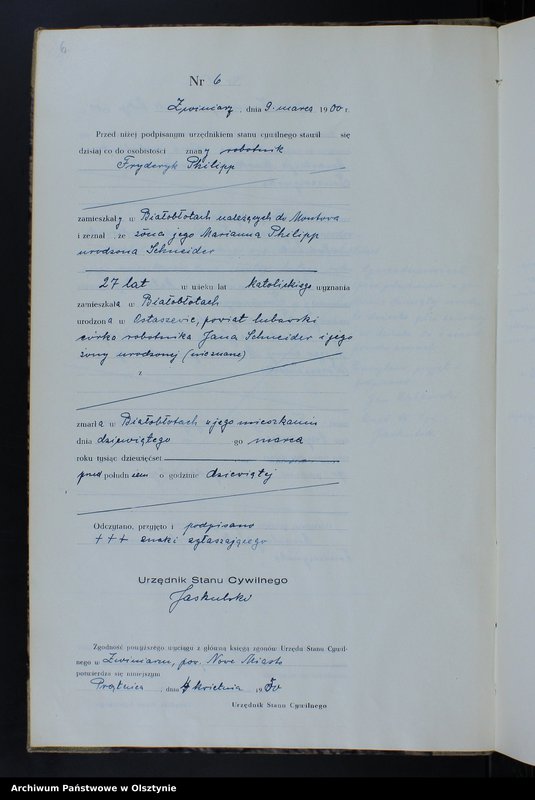 6
Nr 6
Zwiniarz, dnia 9. marca 1900 r.
Przed niżej podpisanym urzędnikiem stanu cywilnego stawił się
dzisiaj co do osobistości znany robotnik
Fryderyk Philipp
zamieszkały w Białobłotach należących do Montowa
i zeznał, że żona jego Marianna Philipp
urodzona Schneider
27 lat w wieku lat katolickiego wyznania
zamieszkała w Białobłotach
urodzona w Ostaszewie, powiat lubawski
córka robotnika Jana Schneider i jego
żony urodzonej (nieznane)
z
zmarła w Białobłotach w jego mieszkaniu
dnia dziewiątego go marca
roku tysiąc dziewięćset
przed południem o godzinie dziewiątej
Odczytano, przyjęto i podpisano
+++ znaki zgłaszającego
Urzędnik Stanu Cywilnego
Jaskulski
Zgodność powyższego wyciągu z główną księgą zgonów Urzędu Stanu Cywil-
nego w Zwiniarzu, pow. Nowe Miasto
potwierdza się niniejszym
Prątnica, dnia 4 kwietnia 1950
Urzędnik Stanu Cywilnego
Archiwum Państwowe w Olsztynie